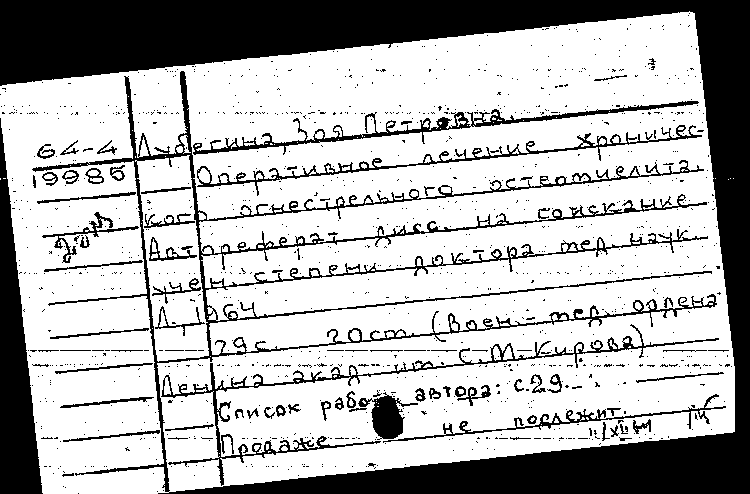 64-4 Лубегина, Зоя Петровна.
19985 Оперативное лечение хроничес-
кого огнестрельного остеомиелита.
Автореферат дисс. на соискание
учен. степени доктора мед. наук.
Л., 1964.
29 с. 20 см. (Воен.-мед. ордена
Ленина акад. им. С.М. Кирова)
Список работ автора: с. 29.
Продаже не подлежит.